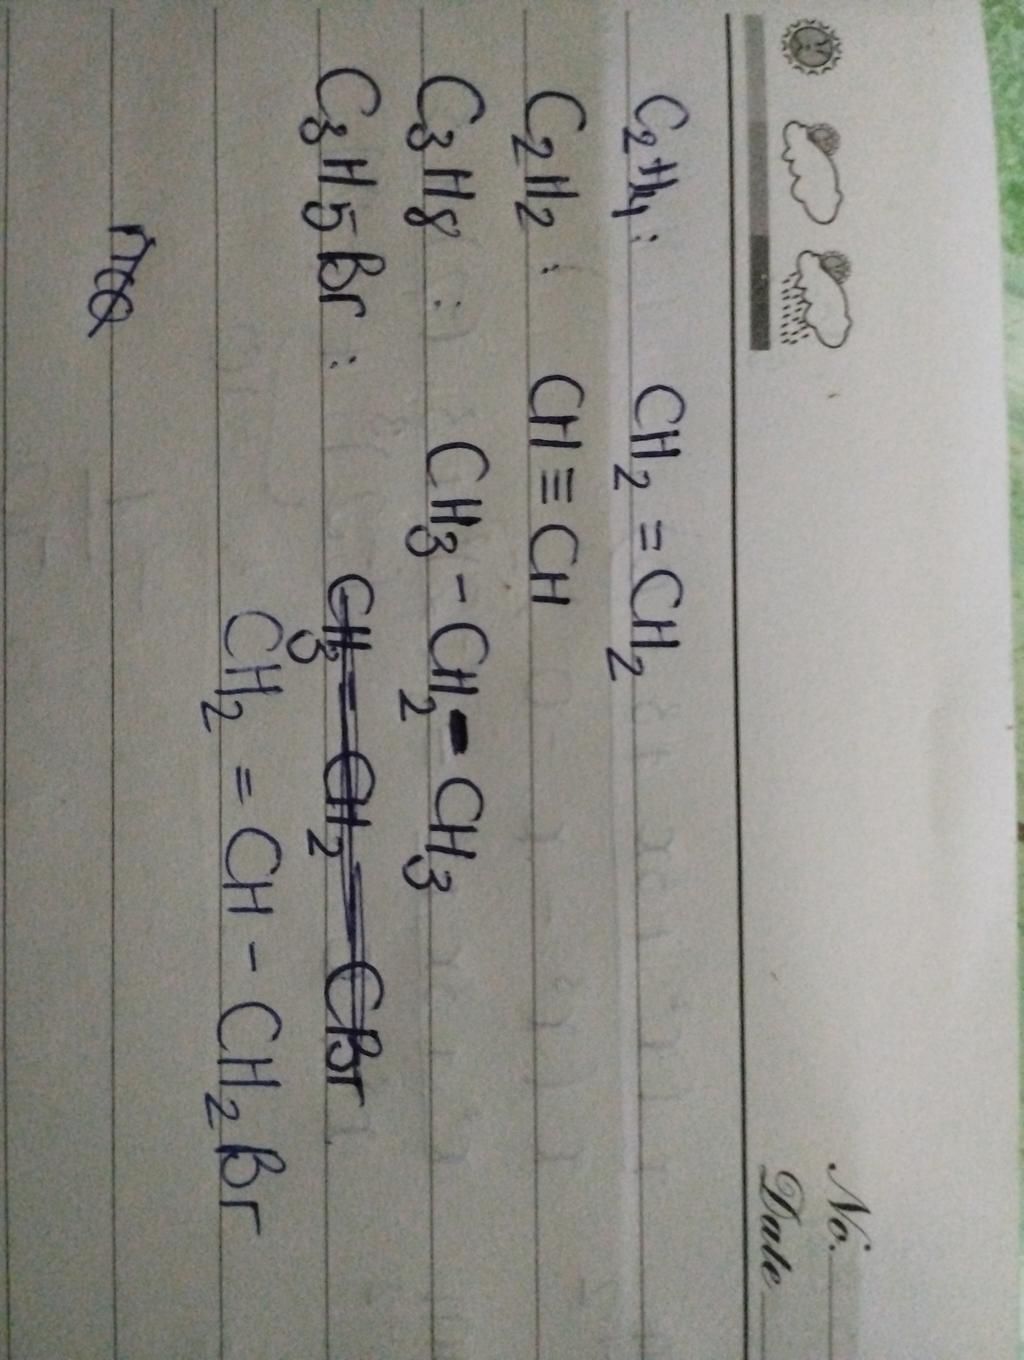 No.
Date
C₂H₄: CH₂ = CH₂
C₂H₂: CH ≡ CH
C₃H₈: CH₃ - CH₂ - CH₃
C₃H₅Br:
CH₂ = CH - CH₂Br